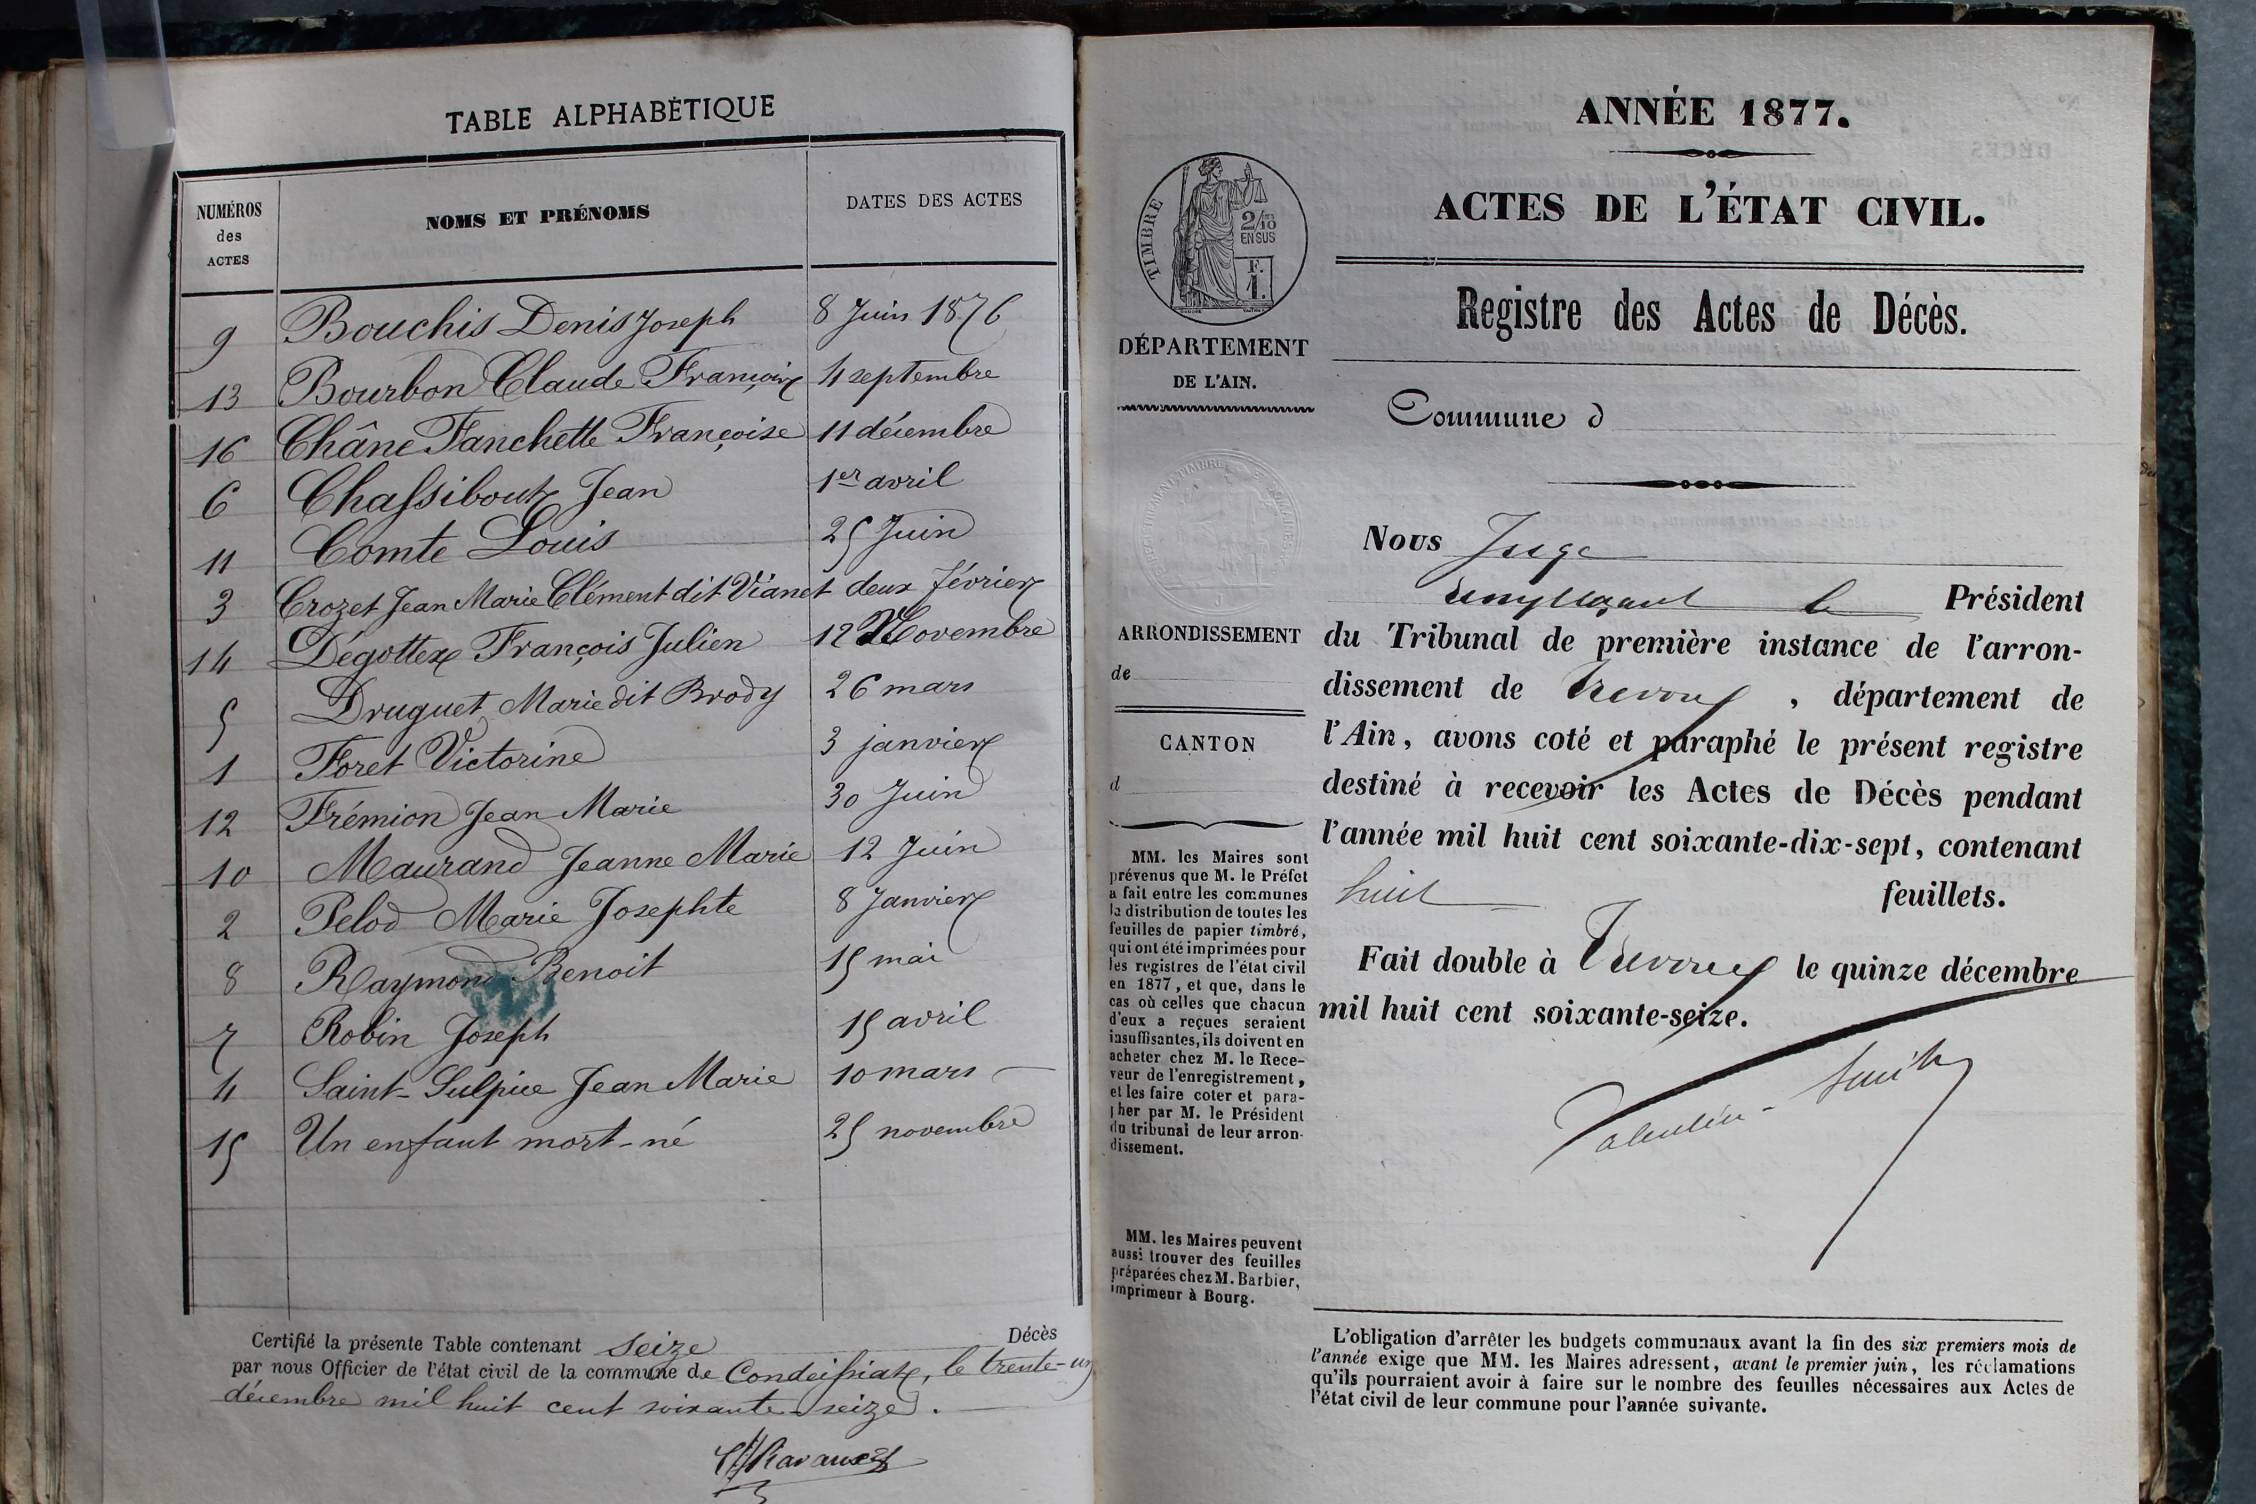 TABLE ALPHABÉTIQUE
NUMÉROS des ACTES NOMS ET PRÉNOMS DATES DES ACTES
9 Bouchis Denis Joseph 8 Juin 1876
13 Bourbon Claude François 4 septembre
16 Châne Fanchette Françoise 11 décembre
6 Chassiboux Jean 1er avril
11 Comte Louis 25 Juin
3 Crozet Jean Marie Clément dit Vianet deux février
14 Dégottex François Julien 12 Novembre
5 Druguet Marie dit Brody 26 mars
1 Foret Victorine 3 janvier
12 Frémion Jean Marie 30 Juin
10 Maurand Jeanne Marie 12 Juin
2 Pelod Marie Josephte 8 Janvier
8 Raymond Benoit 15 mai
7 Robin Joseph 15 avril
4 Saint-Sulpice Jean Marie 10 mars
15 Un enfant mort-né 25 novembre
Certifié la présente Table contenant seize Décès
par nous Officier de l'état civil de la commune de Condeissiat, le trente-un
décembre mil huit cent soixante-seize.
ANNÉE 1877.
ACTES DE L'ÉTAT CIVIL.
Registre des Actes de Décès.
TIMBRE
2/10
EN SUS
F.
1.
DÉPARTEMENT
DE L'AIN.
ARRONDISSEMENT
de
CANTON
d
MM. les Maires sont
prévenus que M. le Préfet
a fait entre les communes
la distribution de toutes les
feuilles de papier timbré,
qui ont été imprimées pour
les registres de l'état civil
en 1877, et que, dans le
cas où celles que chacun
d'eux a reçues seraient
insuffisantes, ils doivent en
acheter chez M. le Rece-
veur de l'enregistrement,
et les faire coter et para-
pher par M. le Président
du tribunal de leur arron-
dissement.
MM. les Maires peuvent
aussi trouver des feuilles
préparées chez M. Barbier,
imprimeur à Bourg.
Commune d
Nous Juge
remplaçant le Président
du Tribunal de première instance de l'arron-
dissement de Trévoux, département de
l'Ain, avons coté et paraphé le présent registre
destiné à recevoir les Actes de Décès pendant
l'année mil huit cent soixante-dix-sept, contenant
huit feuillets.
Fait double à Trévoux le quinze décembre
mil huit cent soixante-seize.
Valentin-Smith
L'obligation d'arrêter les budgets communaux avant la fin des six premiers mois de
l'année exige que MM. les Maires adressent, avant le premier juin, les réclamations
qu'ils pourraient avoir à faire sur le nombre des feuilles nécessaires aux Actes de
l'état civil de leur commune pour l'année suivante.